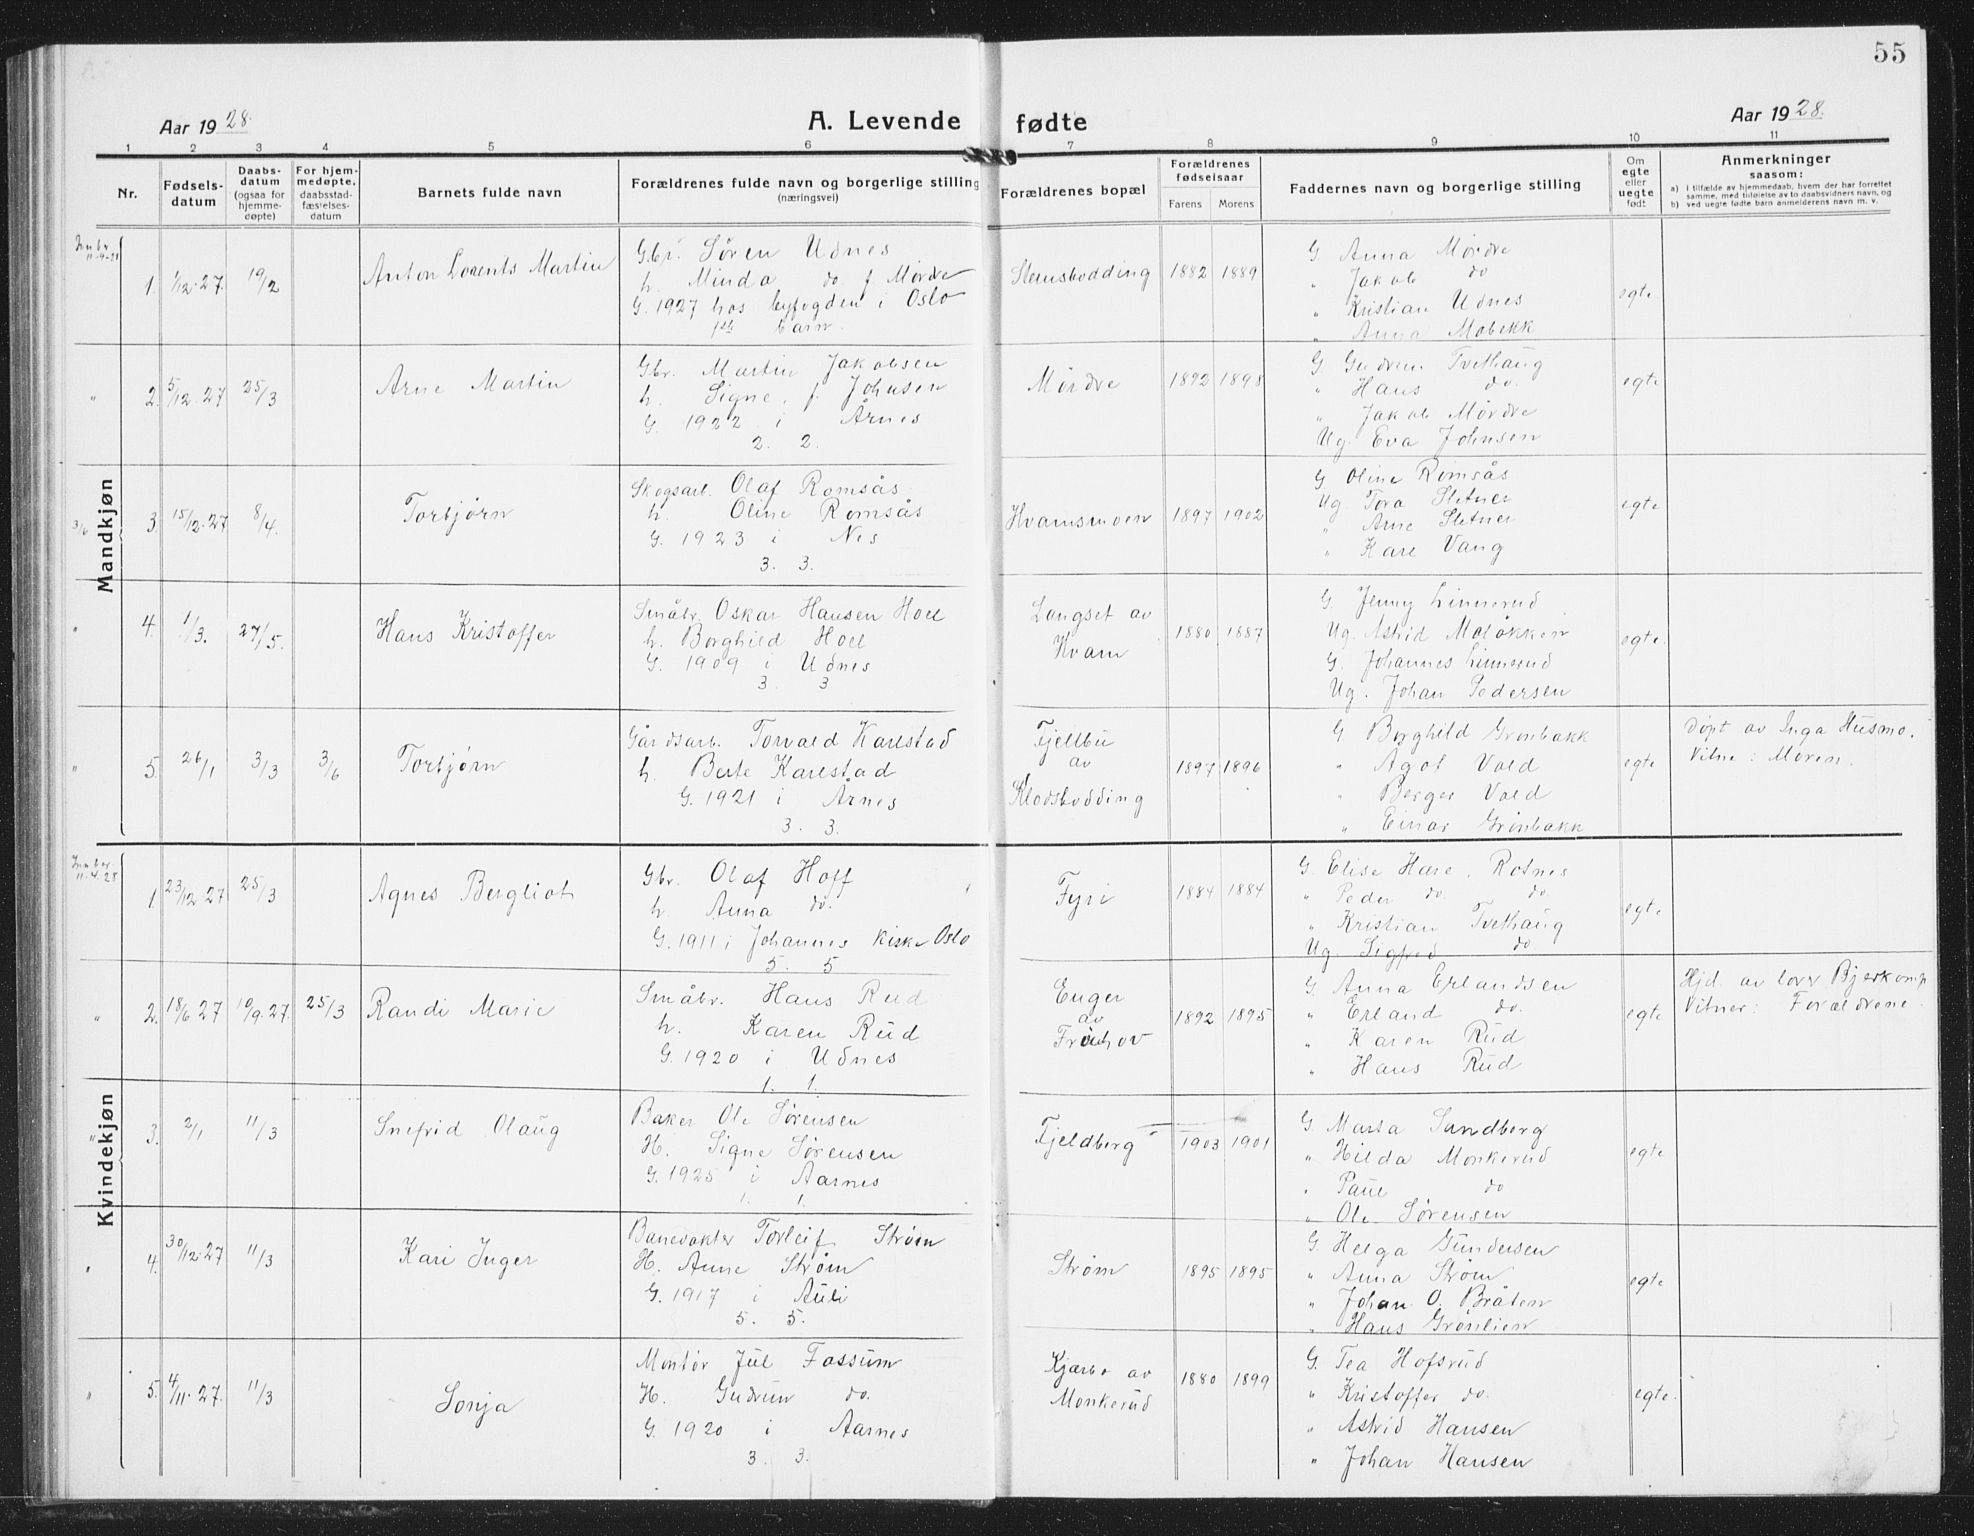 55
Aar 1928. A. Levende fødte Aar 1928.
1 2 3 4 5 6 7 8 9 10 11
Nr. Fødsels-datum Daabs-datum (ogsaa for hjemme-døpte) For hjem-medøpte, daabsstad-fæstelses-datum Barnets fulde navn Forældrenes fulde navn og borgerlige stilling (næringsvei) Forældrenes bopæl Forældrenes fødselsaar Farens Morens Faddernes navn og borgerlige stilling Om egte eller uegte født Anmerkninger saasom:
a) i tilfælde av hjemmedaab, hvem der har forrettet samme, med tilføielse av to daabsvidners navn, og
b) ved uegte fødte barn anmelderens navn m. v.
Mandkjøn
Innbr. 11-4-28
1. 1/12-27. 19/2 Anton Lorents Martin Gbr. Søren Udnes Stensbodding 1882 1889 G Anna Mørdre egte
h. Minda do f. Mørdre " Jakob do
G. 1927 hos byfogden i Oslo " Kristian Udnes
1ste barn. " Anna Mobekk
" 2. 5/12-27 25/3 Arne Martin Gbr. Martin Jakobsen Mørdre 1892 1898 G Gudrun Tvethaug egte
h. Signe, f. Johnsen " Hans do.
G. 1922 i Årnes " Jakob Mørdre
2. 2. Ug. Eva Johnsen
3/6 3. 15/12-27 8/4. Torbjørn Skogsarb. Olaf Romsås Hvamsmoen 1897 1902 G Oline Romsås egte
h. Oline Romsås Ug Tora Sletner
G. 1923 i Nes " Arne Sletner
3. 3. " Kare Vang
" 4. 1/3. 27/5. Hans Kristoffer Småbr. Oskar Hansen Hoel Langset av Hvam 1880 1887 G. Jenny Linnerud egte.
h. Borghild Hoel Ug. Astrid Moløkken
G. 1909 i Udnes G. Johannes Linnerud
3. 3 Ug. Johan Pedersen
" 5. 26/1 3/3 3/6 Torbjørn Gårdsarb. Torvald Karlstad Fjellbu av Klodsbodding 1897 1896 G Borghild Grønbakk egte Døpt av Inga Husmo.
h. Berte Karlstad " Ågot Vold Vitne: Moren.
G. 1921 i Årnes " Berger Vold
3. 3. " Einar Grønbakk
Kvindekjøn
Innber. 11-4-28
1. 23/12 27 25/3 Agnes Bergliot Gbr. Olaf Hoff Fyri 1884 1884 G. Elise Hare, Rotnes egte
h. Anna do. " Peder do. do.
G. 1911 i Johannes kirke Oslo " Kristian Tvethaug
5. 5 Ug. Sigfred do
" 2. 18/6 27 10/9.27. 25/3 Randi Marie Småbr. Hans Rud Enger av Frøhov 1892 1895 G. Anna Erlandsen egte Hjd. av Bjerkomp
h. Karen Rud " Erland do. Vitner: Foreldrene.
G. 1920 i Udnes " Karen Rud
1. 1. " Hans Rud
" 3. 2/1 11/3 Snefrid Olaug Baker Ole Sørensen Fjeldberg 1903 1901 G. Marta Sandberg egte
H. Signe Sørensen " Hilda Monkerud
G. 1925 i Aarnes " Paul do
1. 1. " Ole Sørensen
" 4. 30/12-27 11/3 Kari Inger Banevokter Torleif Strøm Strøm 1895 1895 G. Helga Gundersen egte
H. Anne Strøm " Anna Strøm
G. 1917 i Auli " Johan O. Bråten
5. 5. " Hans Grønlien
" 5. 4/11-27. 11/3 Sonja Montør Jul Fossum Kjærbo av Monkerud 1880 1899 G. Tea Hofsrud egte.
H. Gudrun do. " Kristoffer do.
G. 1920 i Aarnes " Astrid Hansen
3. 3. " Johan Hansen